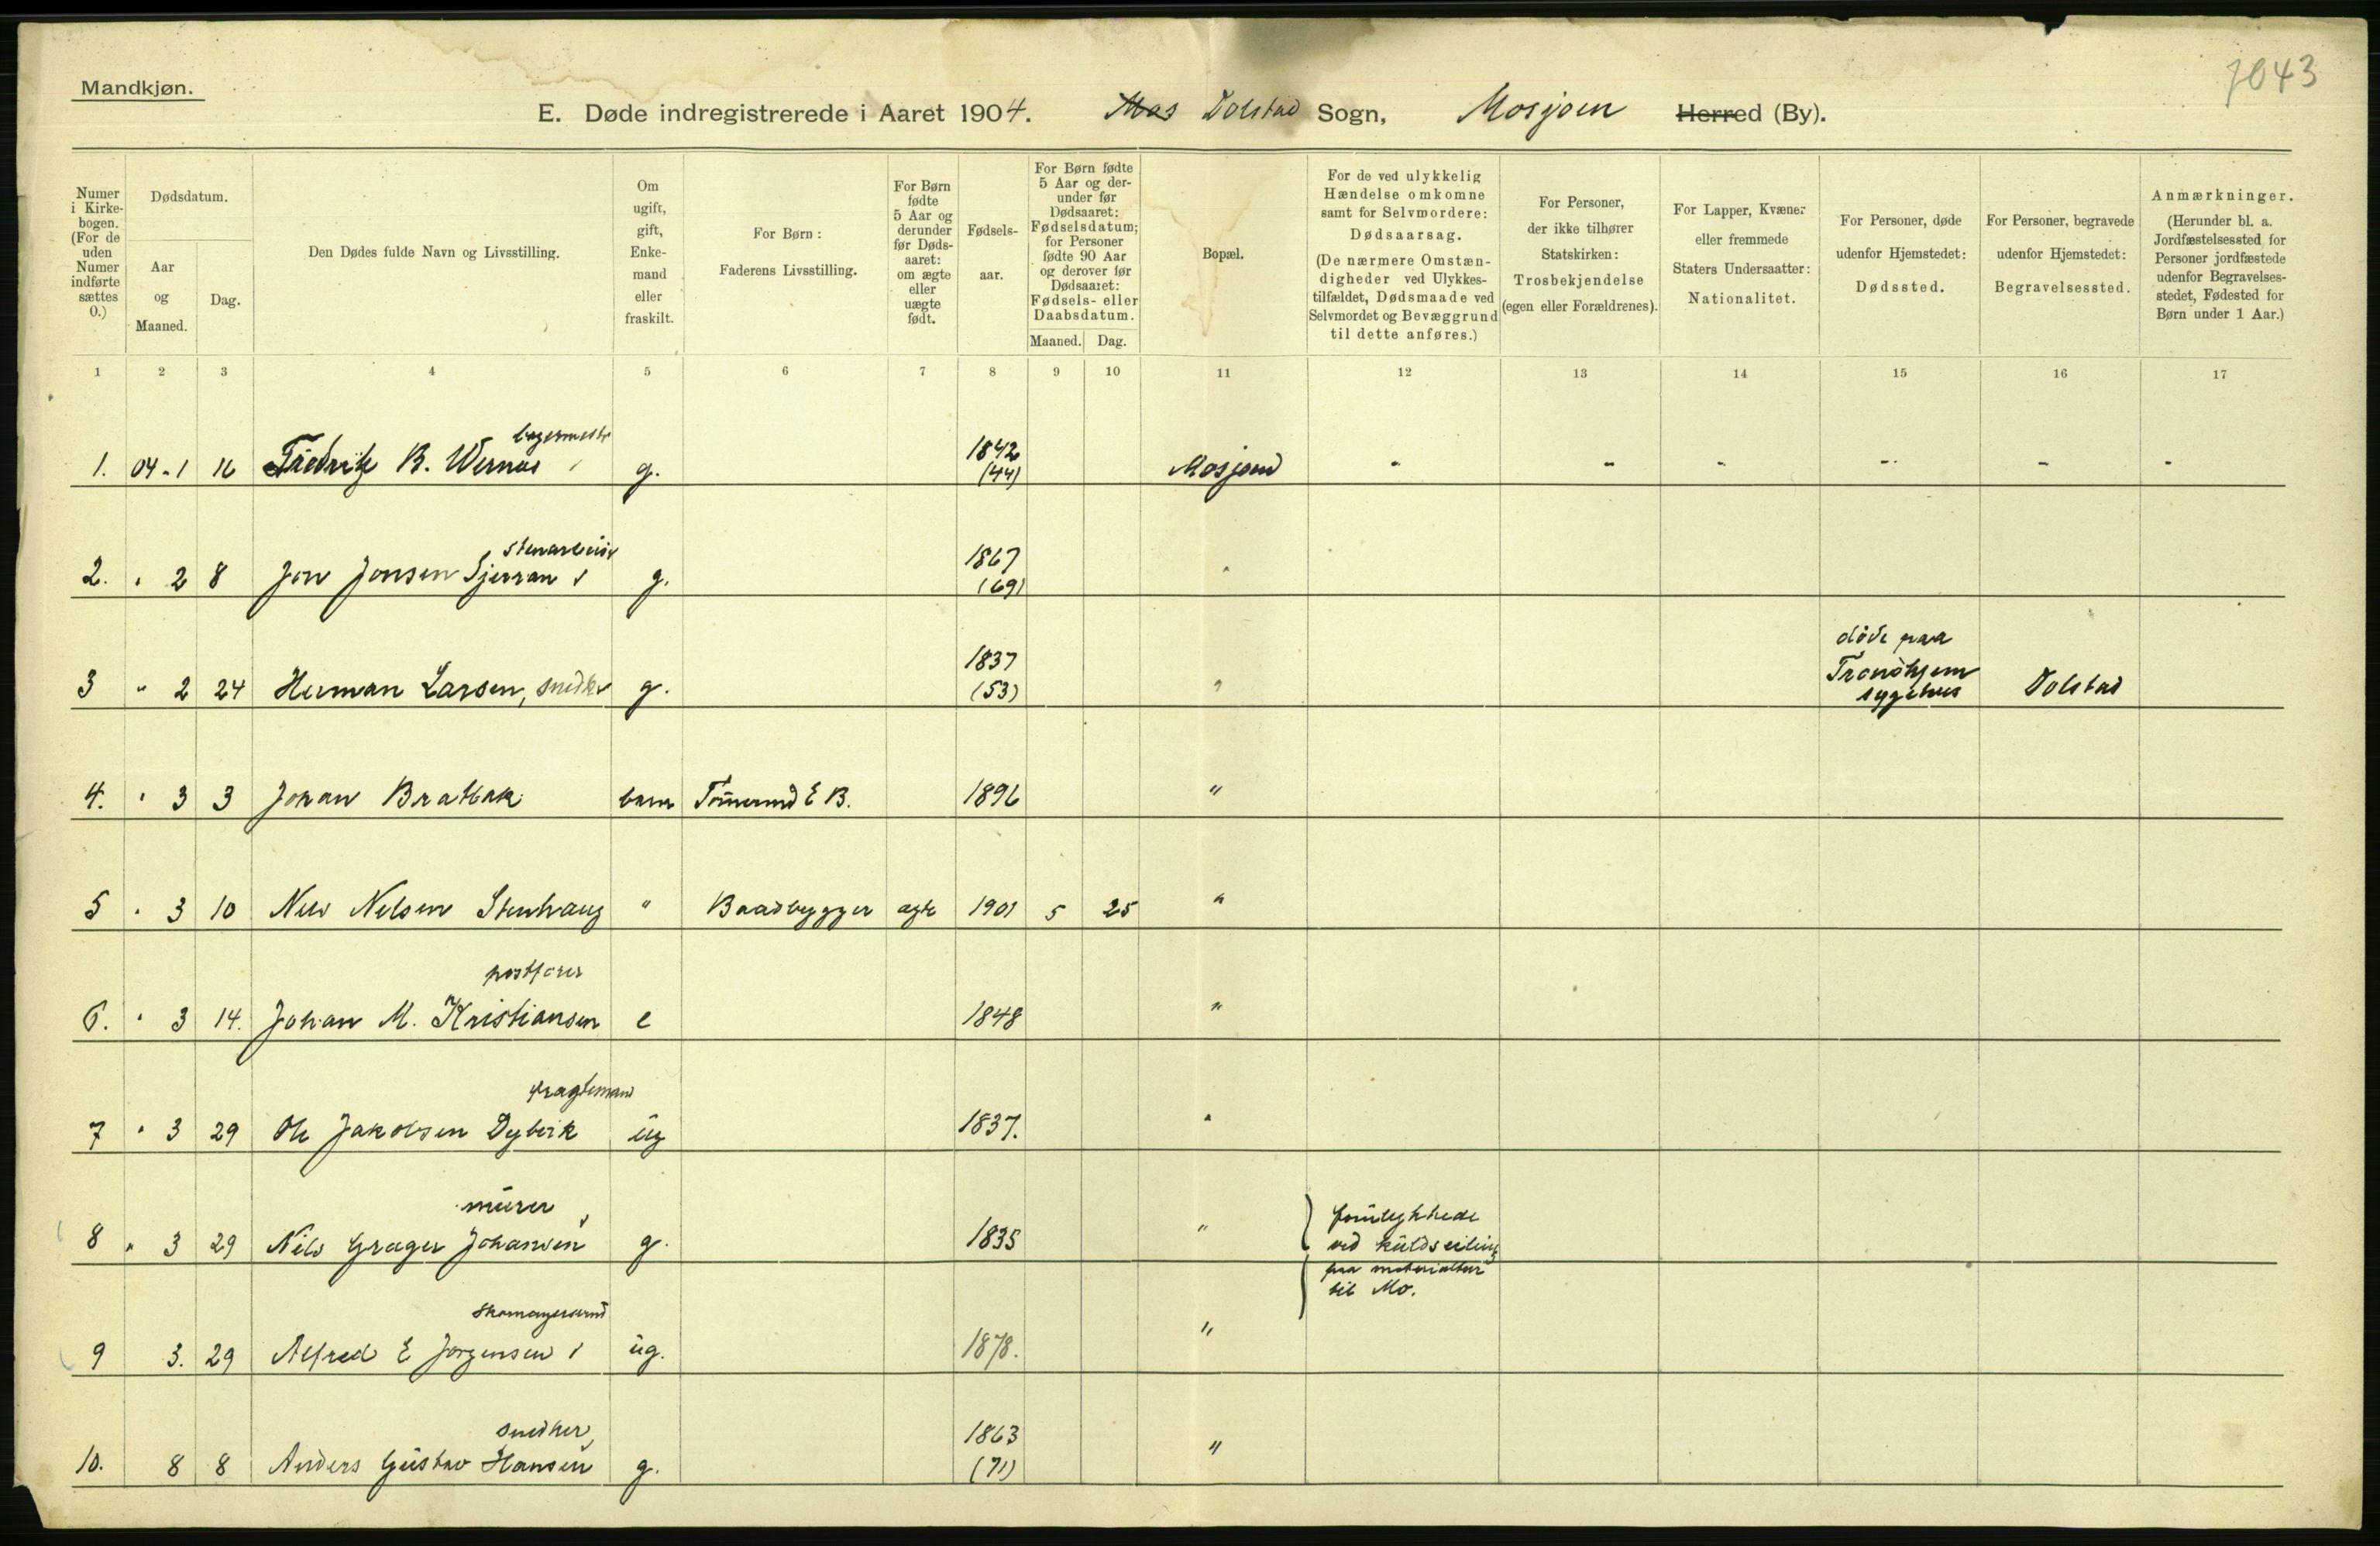 Mandkjøn.
7043
E. Døde indregistrerede i Aaret 1904. Mos Dolstad Sogn, Mosjøen Herred (By).
Numer i Kirkebogen. (For de uden Numer indførte sættes 0.)
Dødsdatum.
Aar og Maaned.
Dag.
Den Dødes fulde Navn og Livsstilling.
Om ugift, gift, Enkemand eller fraskilt.
For Børn: Faderens Livsstilling.
For Børn fødte 5 Aar og derunder før Dødsaaret: om ægte eller uægte født.
Fødselsaar.
For Børn fødte 5 Aar og derunder før Dødsaaret: Fødselsdatum; for Personer fødte 90 Aar og derover før Dødsaaret: Fødsels- eller Daabsdatum.
Maaned. Dag.
Bopæl.
For de ved ulykkelig Hændelse omkomne samt for Selvmordere: Dødsaarsag. (De nærmere Omstændigheder ved Ulykkestilfældet, Dødsmaade ved Selvmordet og Bevæggrund til dette anføres.)
For Personer, der ikke tilhører Statskirken: Trosbekjendelse (egen eller Forældrenes).
For Lapper, Kvæner eller fremmede Staters Undersaatter: Nationalitet.
For Personer, døde udenfor Hjemstedet: Dødssted.
For Personer, begravede udenfor Hjemstedet: Begravelsessted.
Anmærkninger. (Herunder bl. a. Jordfæstelsessted for Personer jordfæstede udenfor Begravelsesstedet, Fødested for Børn under 1 Aar.)
1 2 3 4 5 6 7 8 9 10 11 12 13 14 15 16 17
1. 04-1 16 Fredrik B. g. 1842 (44) Mosjøen - - - - - -
2. " 2 8 Jon Jonsen stenarbeider g. 1867 (69) "
3 " 2 24 Herman Larsen, snedker g. 1837 (53) " døde paa Trondhjem sygehus Dolstad
4. " 3 3 Johan Brattbak barn E B. 1896 "
5 " 3 10 Nils Nilsen Stenhaug " Baadbygger ægte 1901 5 25 "
6. " 3 14. Johan M. Kristiansen postfører e 1848 "
7 " 3 29 Ole Jakobsen Dybvik fragtemand ug 1837. "
8 " 3 29 Nils Johansen murer g. 1835 " forulykkede ved kuldseiling paa til Mo.
9 3. 29 Alfred E Jørgensen skomagersvend ug. 1878. "
10. 8 8 Anders Gustav Hansen snedker, g. 1863 (71) "